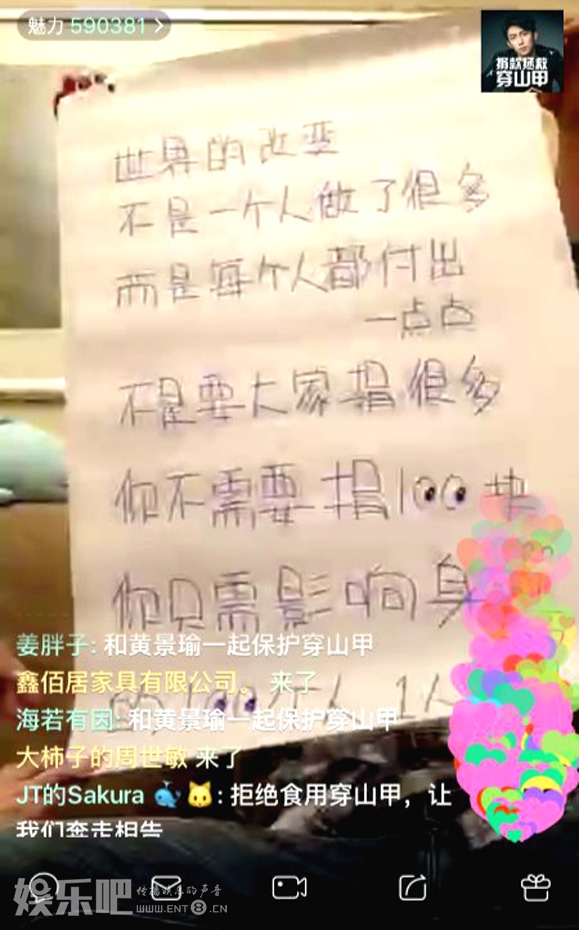 魅力 590381 >
捐款拯救
穿山甲
世界的改变
不是一个人做了很多
而是每个人都付出
一点点
不是要大家捐很多
你不需要捐100块
你只需影响身
100个人 1人
姜胖子: 和黄景瑜一起保护穿山甲
鑫佰居家具有限公司。 来了
海若有因: 和黄景瑜一起保护穿山甲
大柿子的周世敏 来了
JT的Sakura 🐳 🐱 : 拒绝食用穿山甲，让
我们奔走相告
娱乐吧 传播娱乐的声音
WWW.ENT8.CN